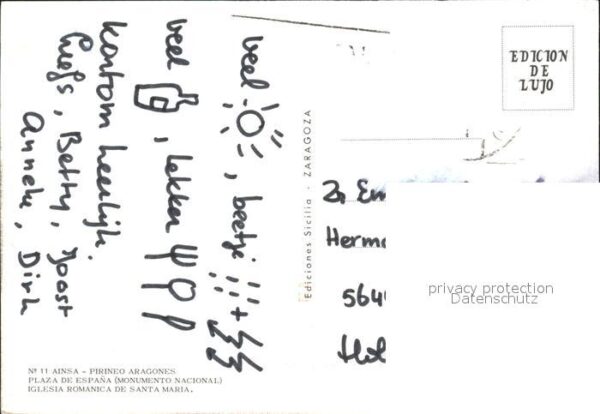 veel , beetje + 
veel , lekker
kortom heerlijk.
Liefs, Betty, Joost
Anneke, Dirk
Ediciones Sicilia - ZARAGOZA
EDICION
DE
LUJO
Herm
564
privacy protection
Datenschutz
Nº 11 AINSA - PIRINEO ARAGONES
PLAZA DE ESPAÑA (MONUMENTO NACIONAL)
IGLESIA ROMÁNICA DE SANTA MARIA.